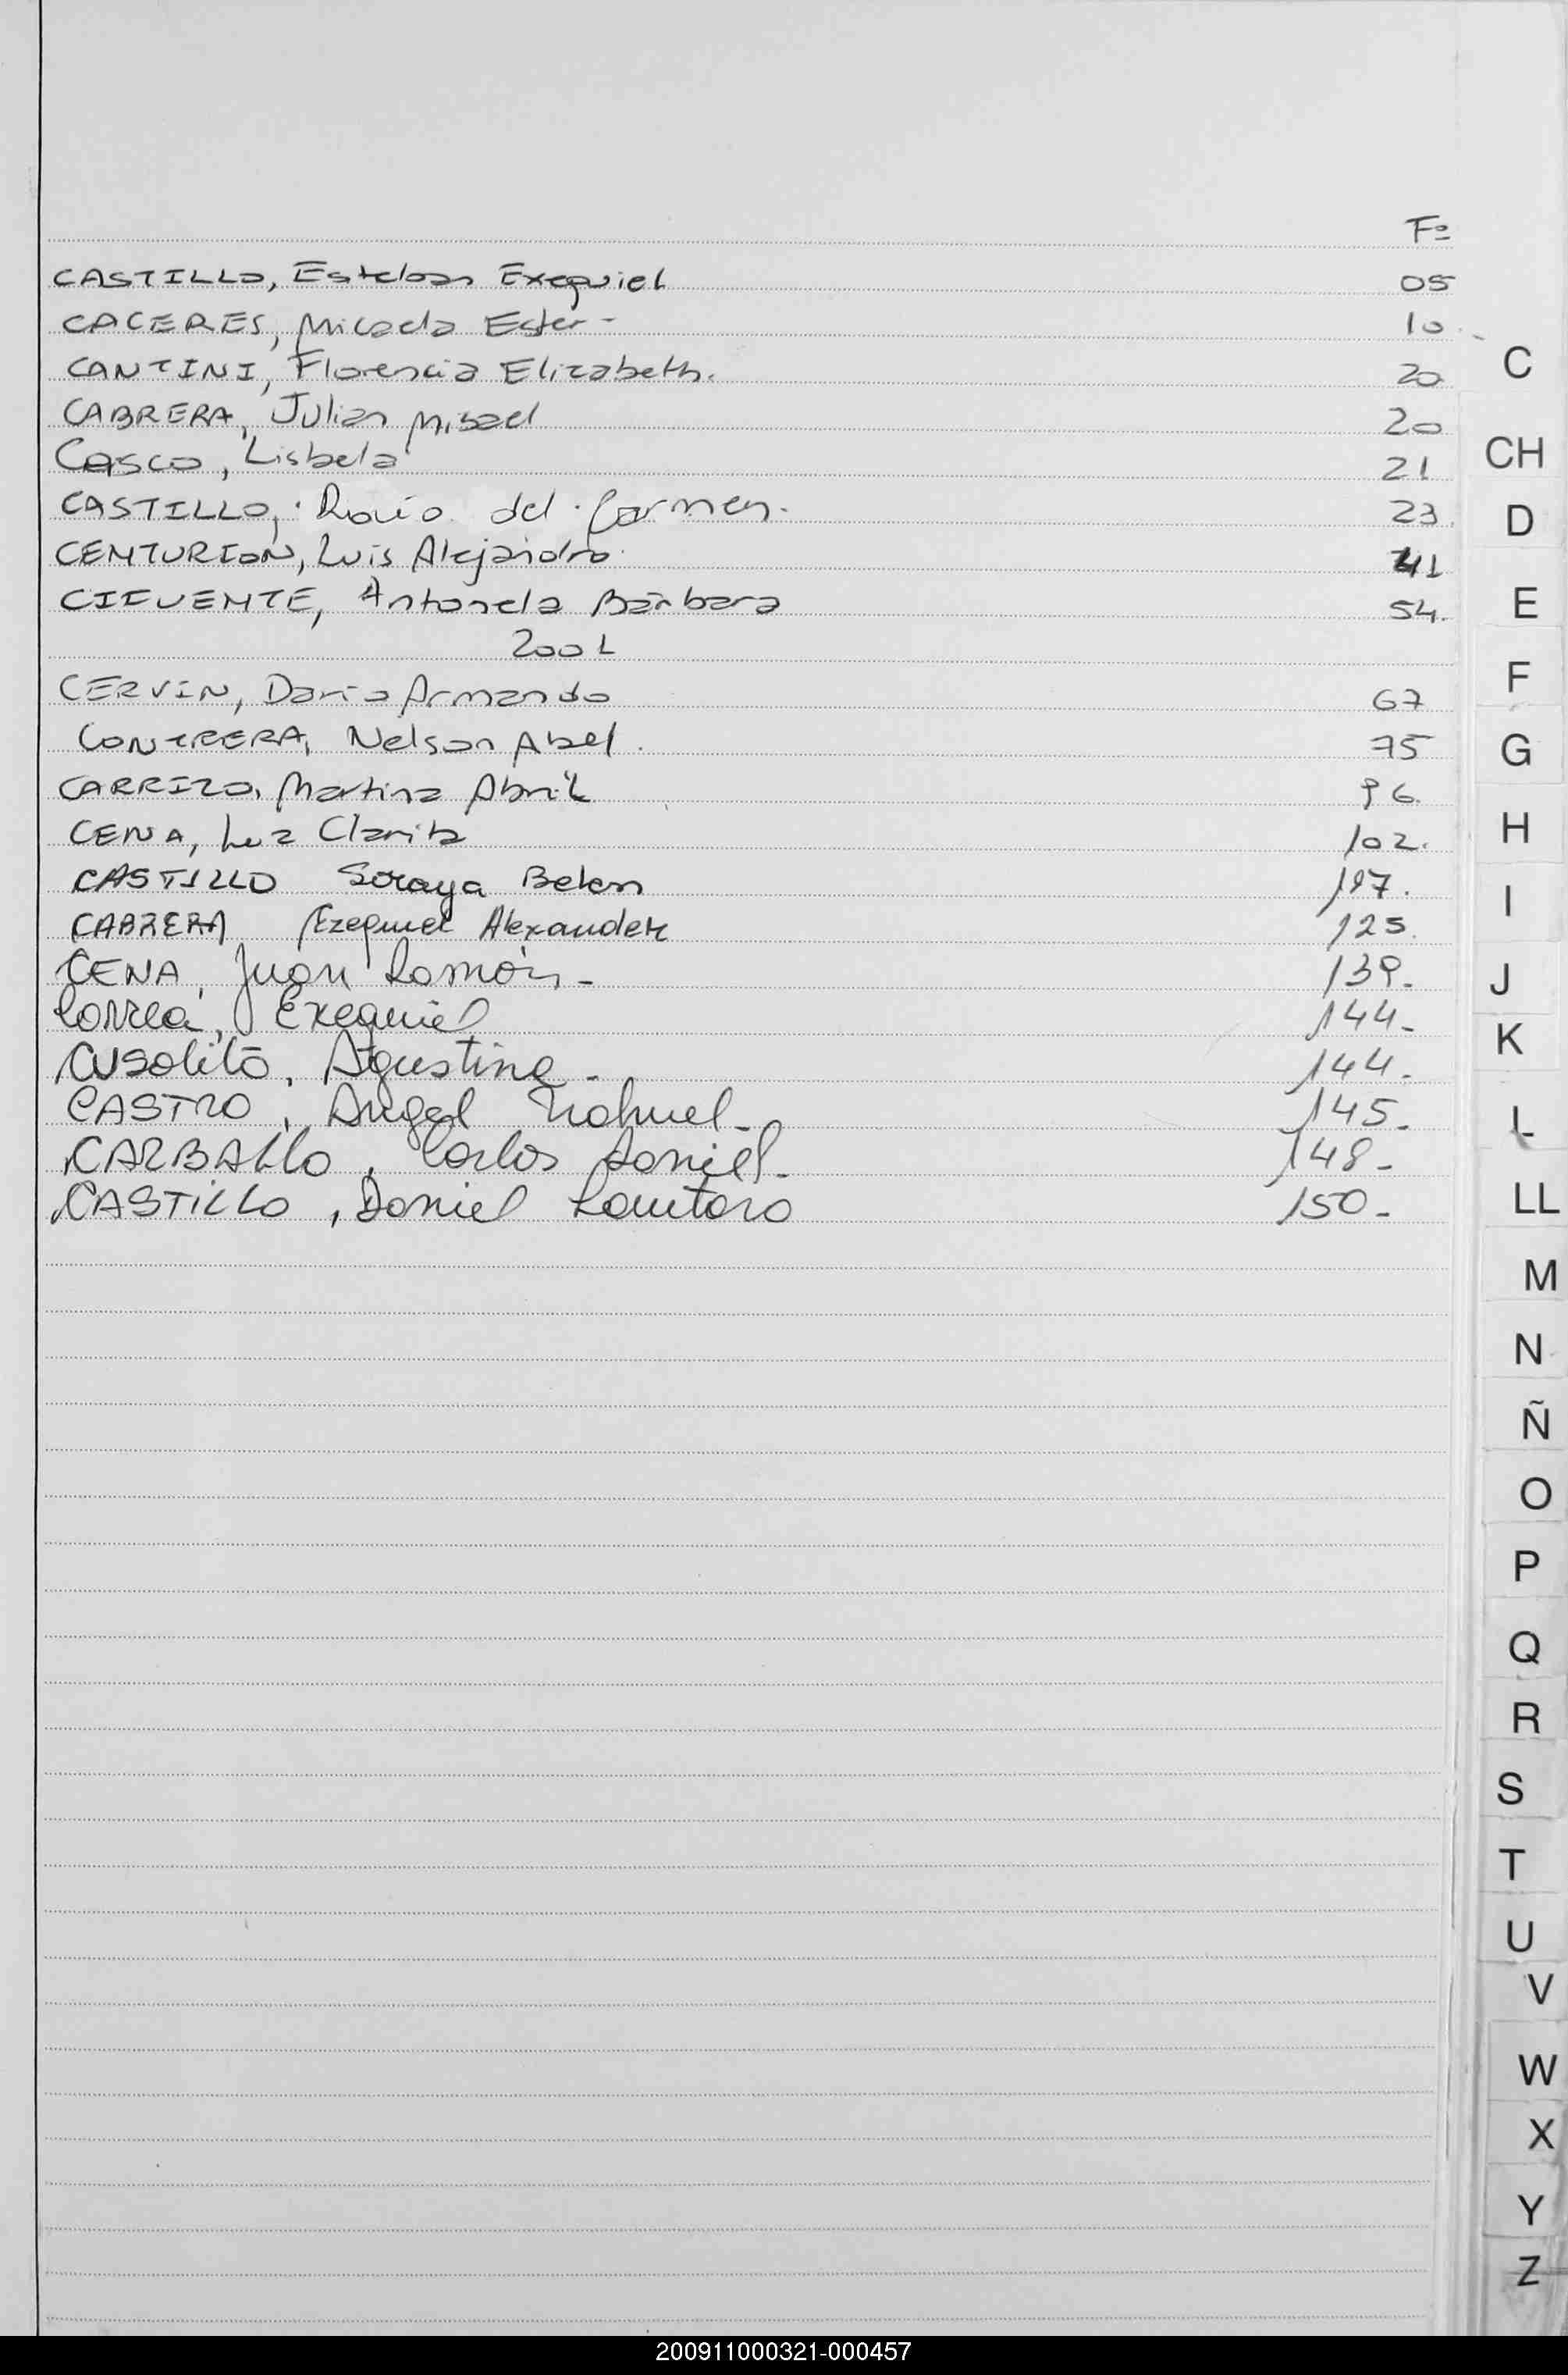 Fº
CASTILLO, Esteban Exequiel 05
CACERES, Micaela Ester - 10
CANTINI, Florencia Elizabeth. 20
CABRERA, Julian Misael 20
CASCO, Lisbela 21
CASTILLO, Rocío del Carmen. 23
CENTURION, Luis Alejandro 41
CIFUENTE, Antonela Bárbara 54.
2001
CERVIN, Dario Armando 67
CONTRERA, Nelson Abel. 75
CARRIZO, Martina Abril 96.
CENA, Luz Clarita 102.
CASTILLO Soraya Belen
CABRERA Ezequiel Alexander 125.
CENA, Juan Ramón - 139.
Correa, Exequiel 144-
CUSOLITO, Agustina - 144-
CASTRO, Angel Nahuel - 145-
CARBALLO, Carlos Daniel - 148-
CASTILLO, Daniel Lautaro 150-
C
CH
D
E
F
G
H
I
J
K
L
LL
M
N
Ñ
O
P
Q
R
S
T
U
V
W
X
Y
Z
200911000321-000457